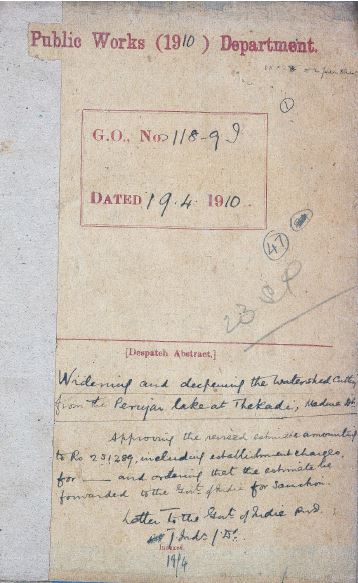 Public Works (1910) Department.
G.O., No. 118-9 I
DATED 19.4.1910.
1
47
23
[Despatch Abstract.]
Widening and deepening the Watershed Cutting
from the Periyar lake at Thekadi, Madura Dt.
Approving the revised estimate amounting
to Rs 251,289, including establishment charges,
for — and ordering that the estimate be
forwarded to the Govt. of India for Sanction.
Letter to the Govt. of India
Indexed.
19/4